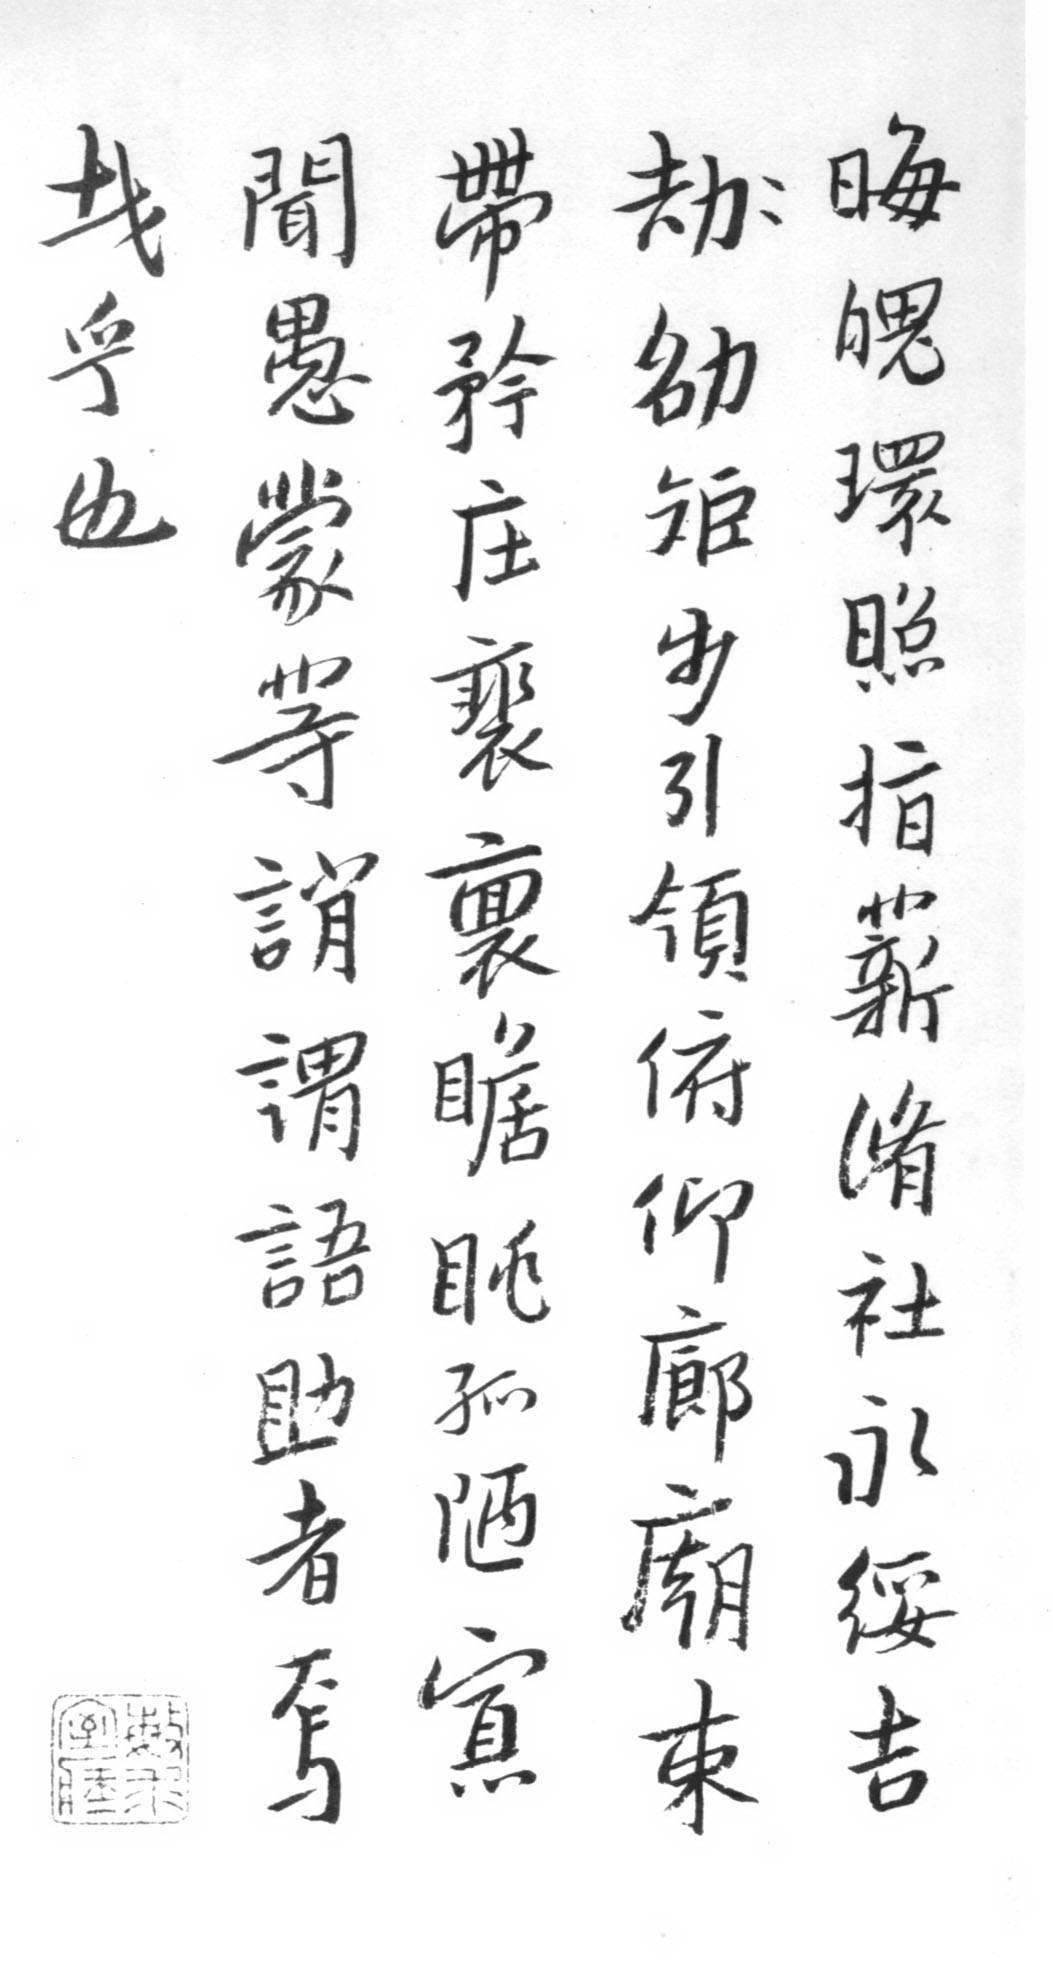 晦魄環照指薪脩祜永綏吉
劫劭矩步引領俯仰廊廟束
帶矜庄裴褱瞻眺孤陋寡
聞愚蒙等誚謂語助者焉
哉乎也